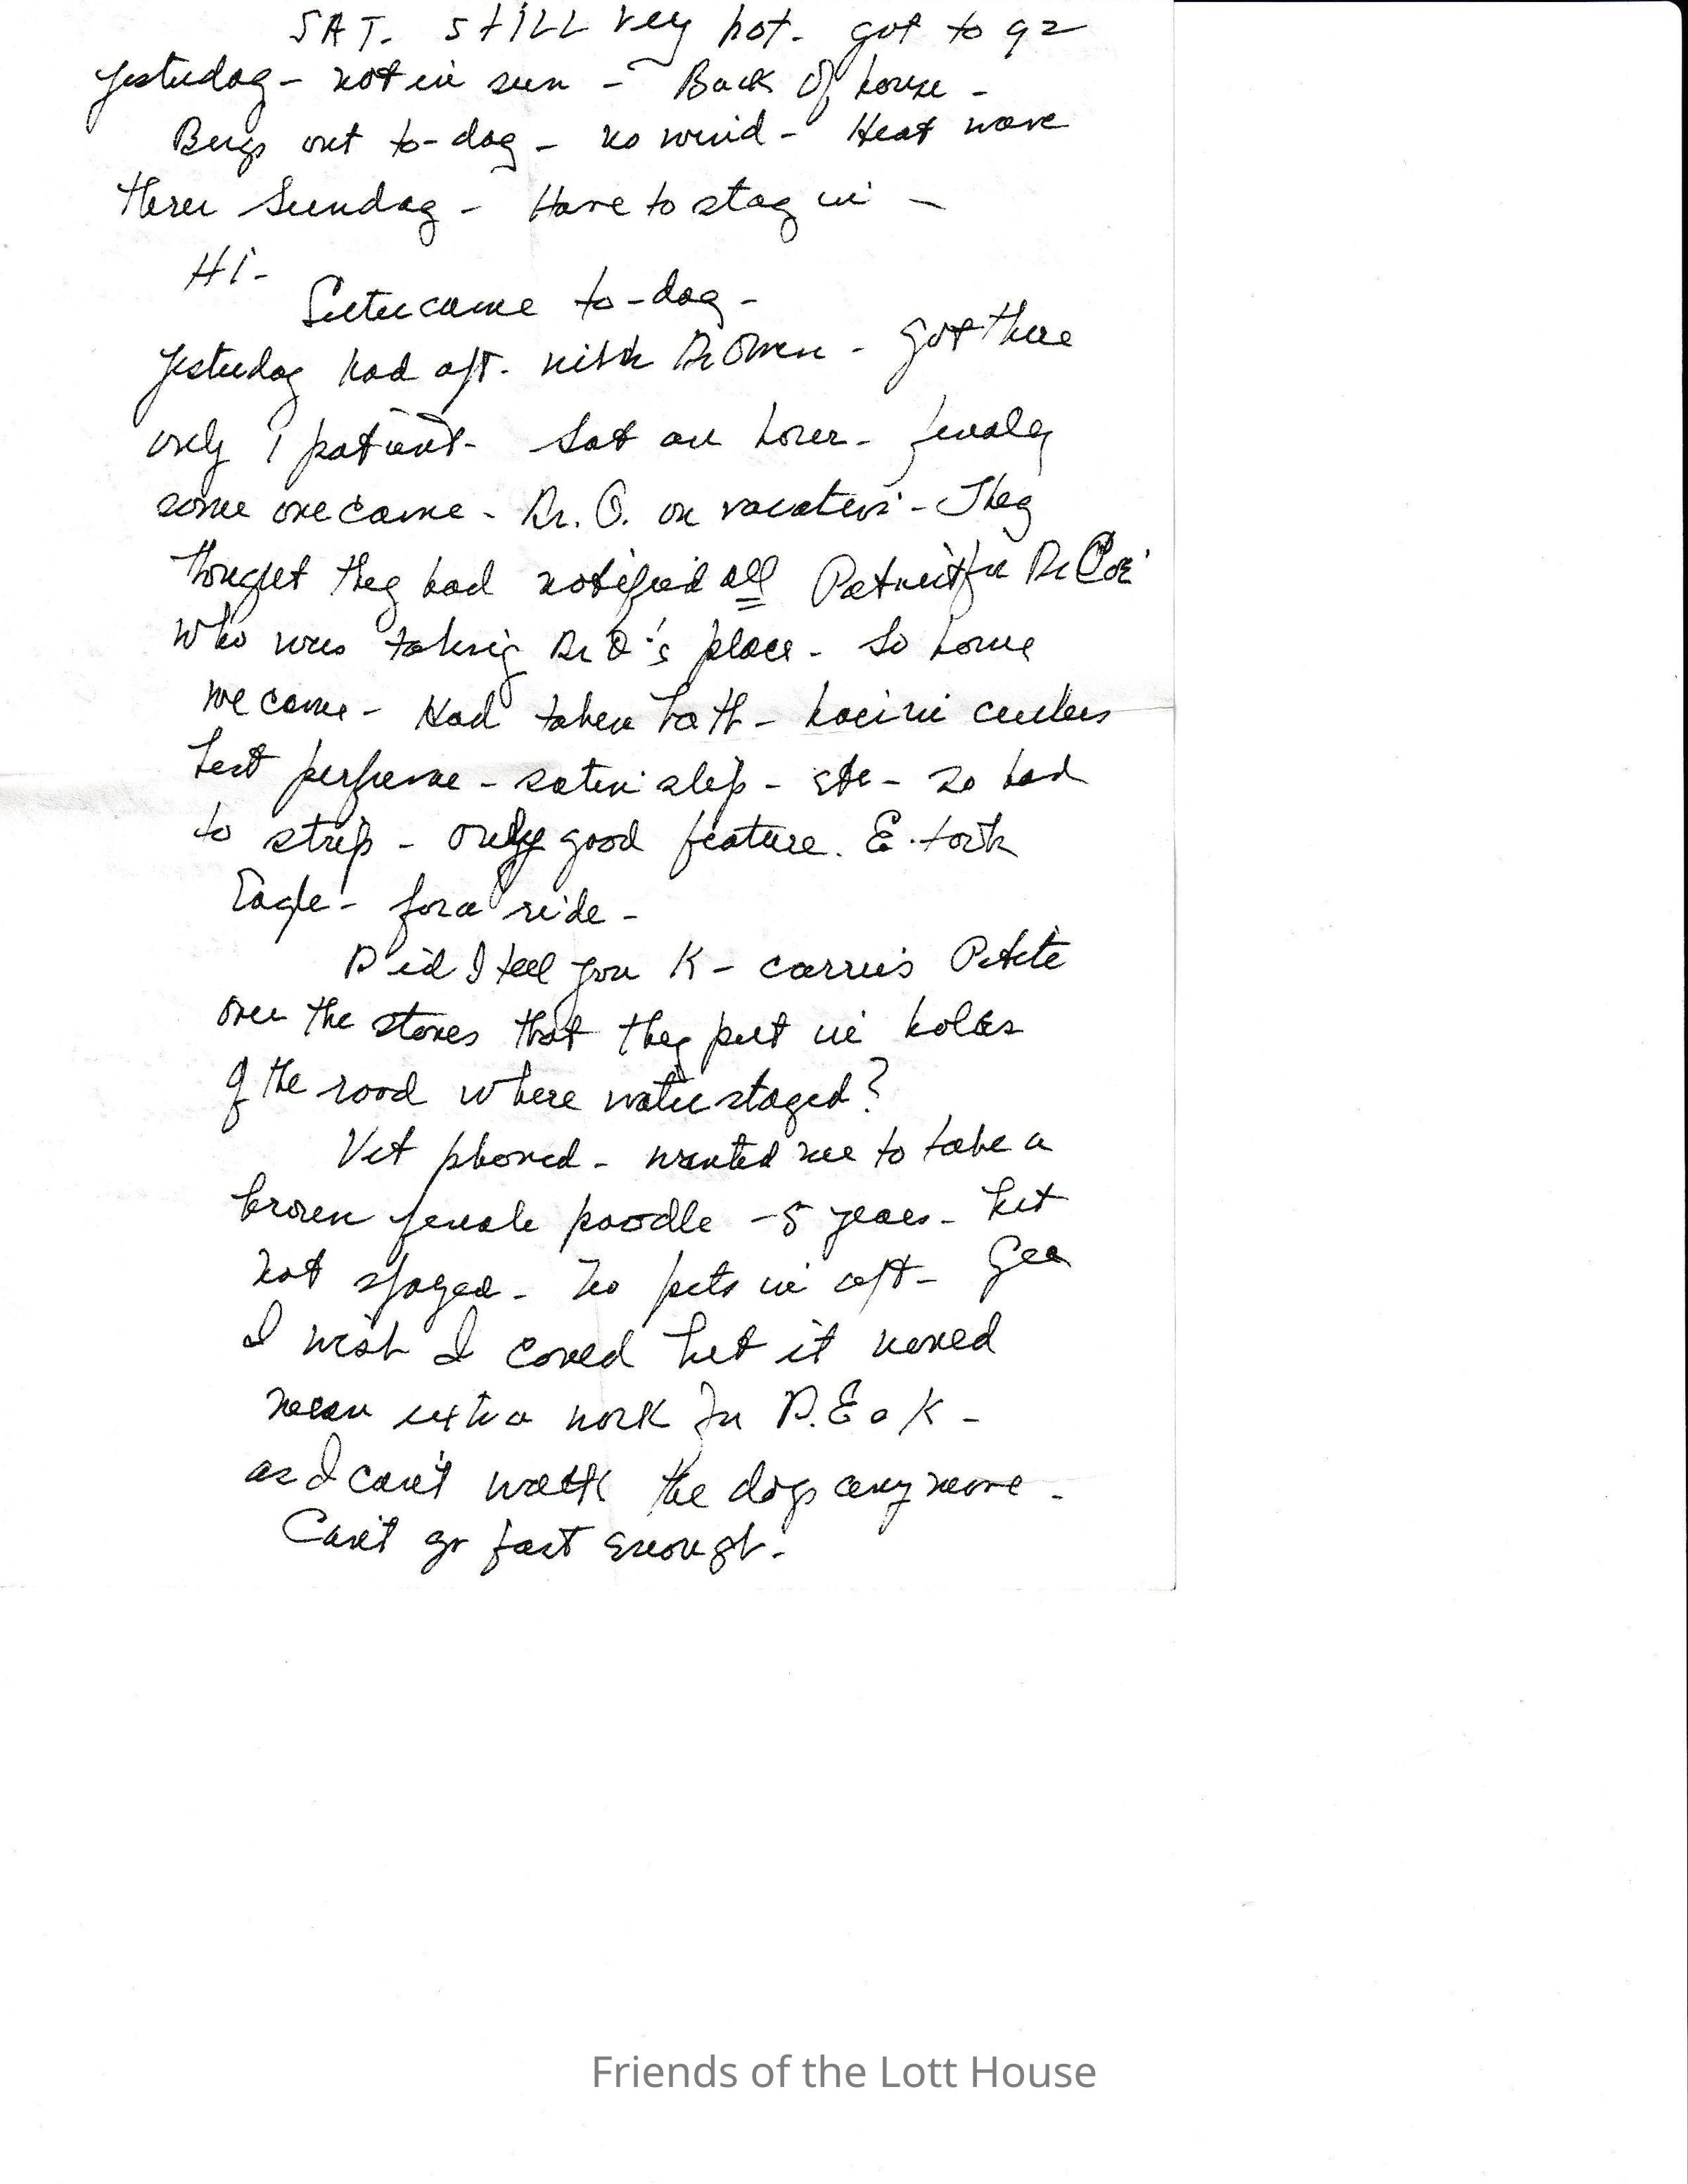 SAT. still very hot. got to 92
yesterday - not in sun - Back of house -
Bugs out to-day - no wind - Heat wave
thru Sunday - Have to stay in -
Hi -
Letter came to-day -
yesterday had apt. with Dr Owen - got there
only 1 patient - sat an hour - finaly
some one came - Dr. O. on vacation - They
thought they had notified all Patients for Dr
who was taking Dr O's place - So home
we came - Had taken bath - hair in curlers
best perfume - satin slip - etc - so had
to strip - only good feature. E. took
Eagle - for a ride -
Did I tell you K - carries Petite
over the stones that they put in holes
of the road where water stayed?
Vet phoned - wanted me to take a
brown female poodle - 5 years - but
not spayed - No pets in apt - Gee
I wish I could but it would
mean extra work for D. E o K -
as I can't walk the dogs any more -
Can't go fast enough -
Friends of the Lott House